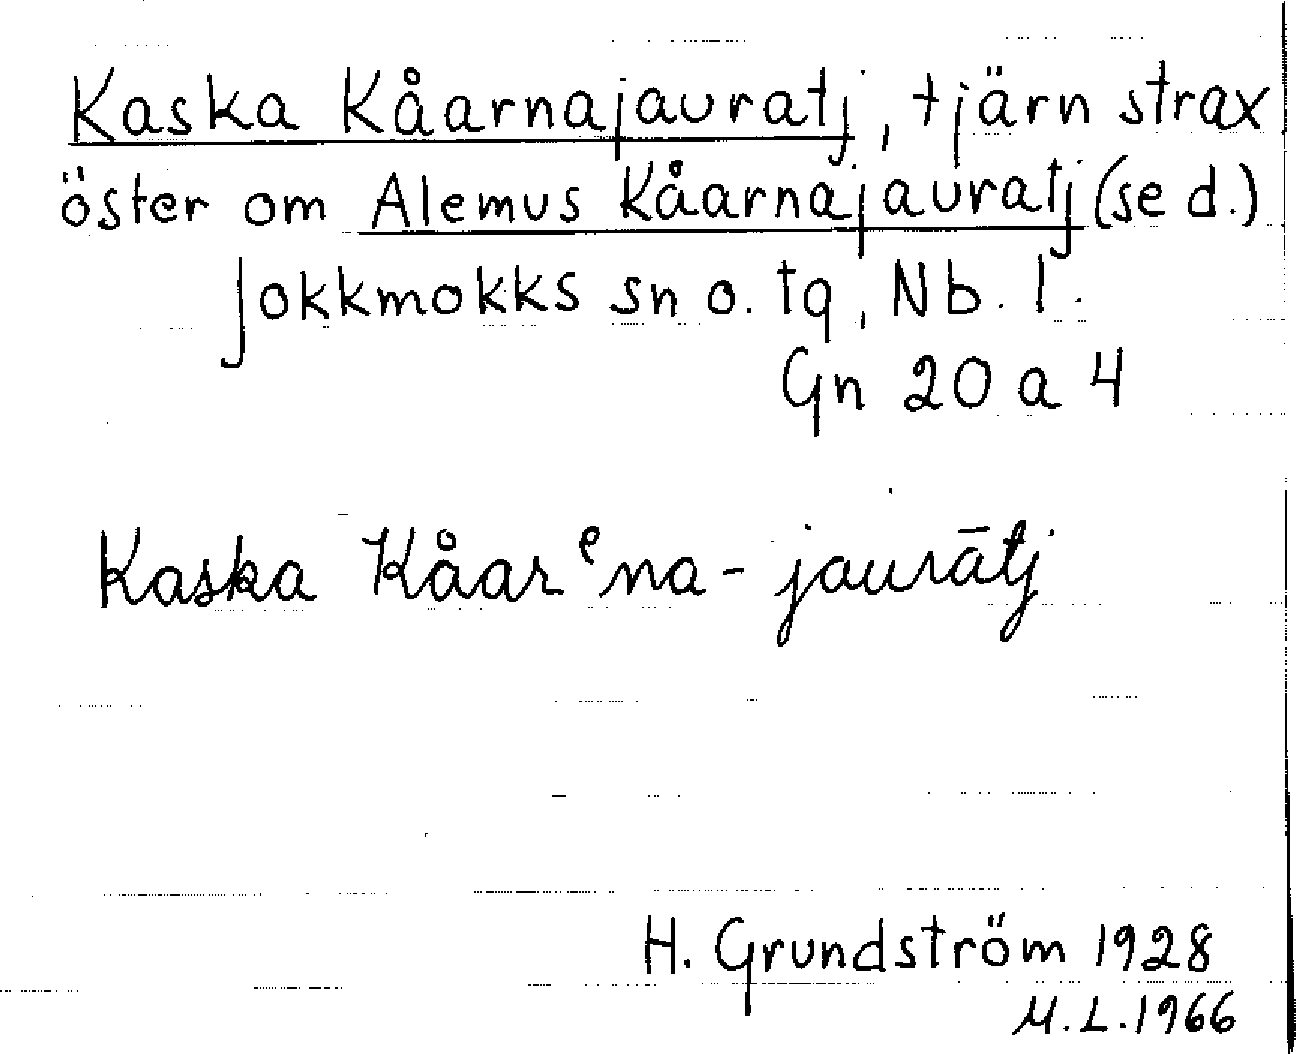 Kaska Kåarnajauratj, tjärn strax
öster om Alemus Kåarnajauratj (se d.)
Jokkmokks sn o. tg, Nb. l.
Gn 20 a 4
Kaska Kåarᵉna-jaurātj
H. Grundström 1928
M.L.1966